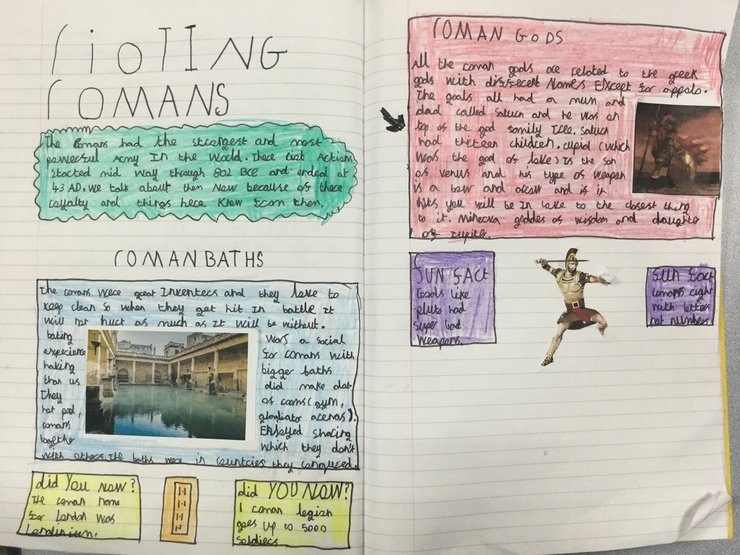 rioTING
rOMANS
The romans had the strongest and most
powerful Army In the World. There last Actions
Started mid way through 802 BCE and ended at
43 AD. We talk about then Now because of there
and things here Know from them.
rOMAN BATHS
The romans were great Inventers and they love to
keep clean so when they get hit In battle It
will not hurt as much as It will be without.
taking
experience
haking
than us.
They
hot pool,
romans
together
was a social
for romans with
bigger baths
did make alot
of rooms (gym,
gladiator arenas).
Enjoyed sharing
which they don't
with others. The baths were in countries they conquered.
did You Now?
The roman name
for London was
Londinium.
did YOU NOW?
1 roman legion
goes up to 5000
soldiers
rOMAN GODS
All the roman gods are related to the greek
gods with different Names Except for appolo.
The goals all had a mum and
dad called Saturn and he was on
top of the god family tree. Saturn
had thirteen children. cupid (which
was the god of love) Is the son
of venus and his type of weapon
is a bow and and is it
hits you will be in love to the closest thing
to it. Minerva goddes of wisdom and daughter
of
FUN FACT
Goods like
pluto had
super bad
weapons.
fun fact
romans right
with letters
not numbers